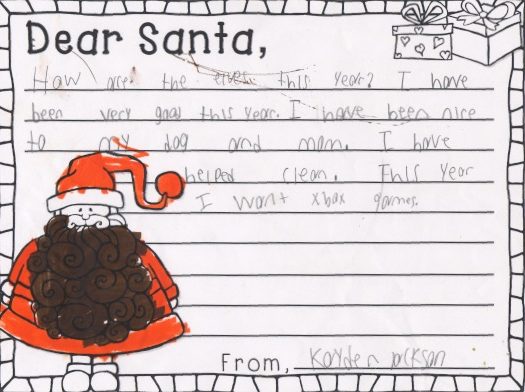 Dear Santa,
How are the elves this year? I have
been very good this year. I have been nice
to my dog and mom. I have
helped clean. This year
I want xbox games.
From, Kayden Jackson